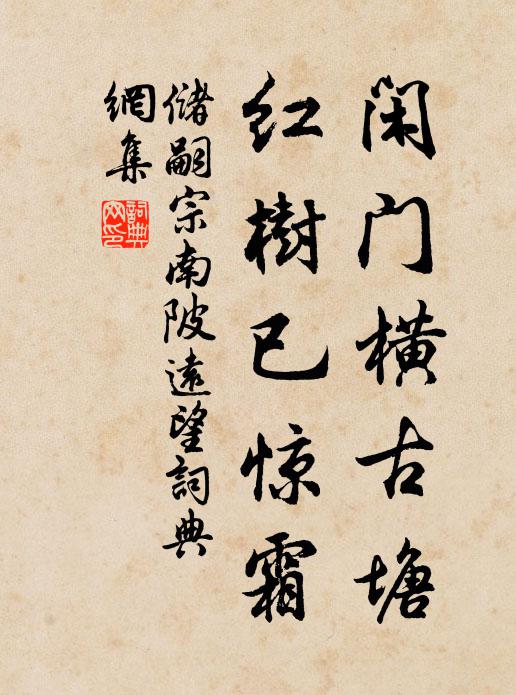 闲门横古塘
红树已惊霜
储嗣宗南陂遠望詞典
網集
詞典
网印